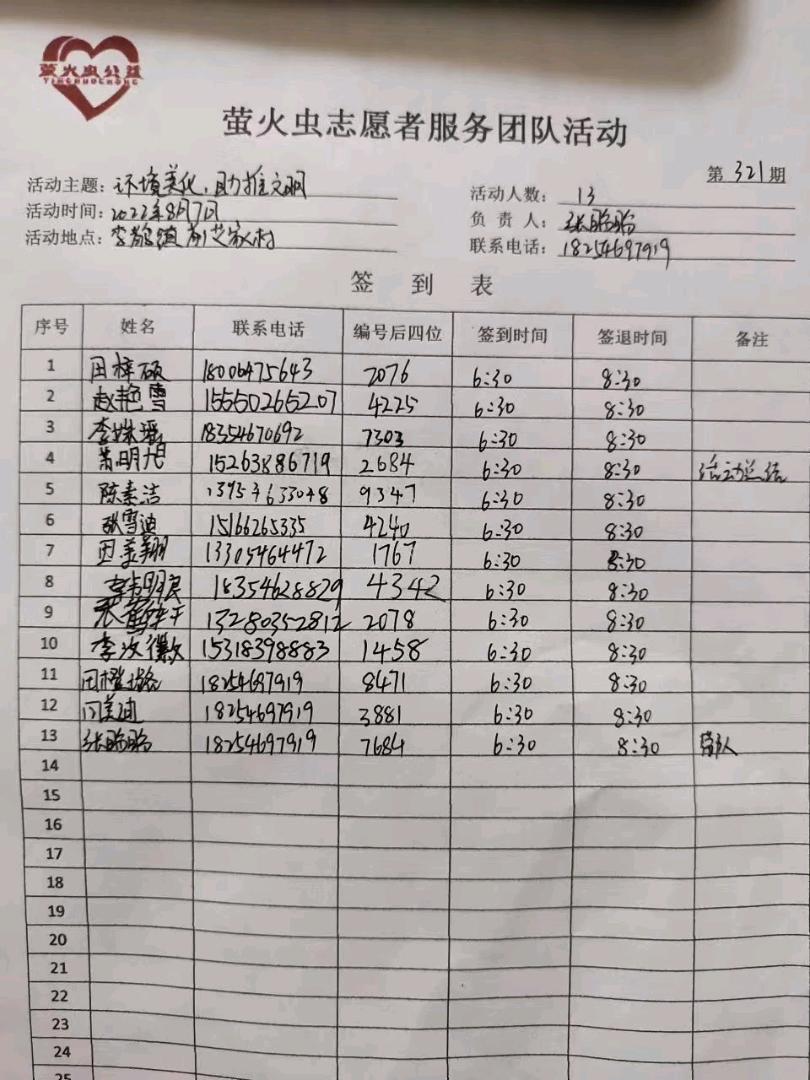 萤火虫公益
YINGHUOCHONG
萤火虫志愿者服务团队活动
第 321 期
活动主题: 环境美化,助推文明
活动人数: 13
活动时间: 2022年8月7日
负 责 人: 张盼盼
活动地点: 李鹊镇 艾家村
联系电话: 18254697919
签 到 表
序号 姓名 联系电话 编号后四位 签到时间 签退时间 备注
1 田梓硕 18006475643 2076 6:30 8:30
2 赵艳雪 155502655207 4225 6:30 8:30
3 李姝瑶 18354670692 7303 6:30 8:30
4 萧明旭 15263886719 2684 6:30 8:30 活动总结
5 陈素洁 9347 6:30 8:30
6 雪迪 15166265335 4240 6:30 8:30
7 13305464472 1767 6:30 8:30
8 明民 18354628829 4342 6:30 8:30
9 13280352812 2078 6:30 8:30
10 李汝徽 15318398883 1458 6:30 8:30
11 田 18254697919 8471 6:30 8:30
12 闫美迪 18254697919 3881 6:30 8:30
13 张盼盼 18254697919 7684 6:30 8:30 带队
14
15
16
17
18
19
20
21
22
23
24
25